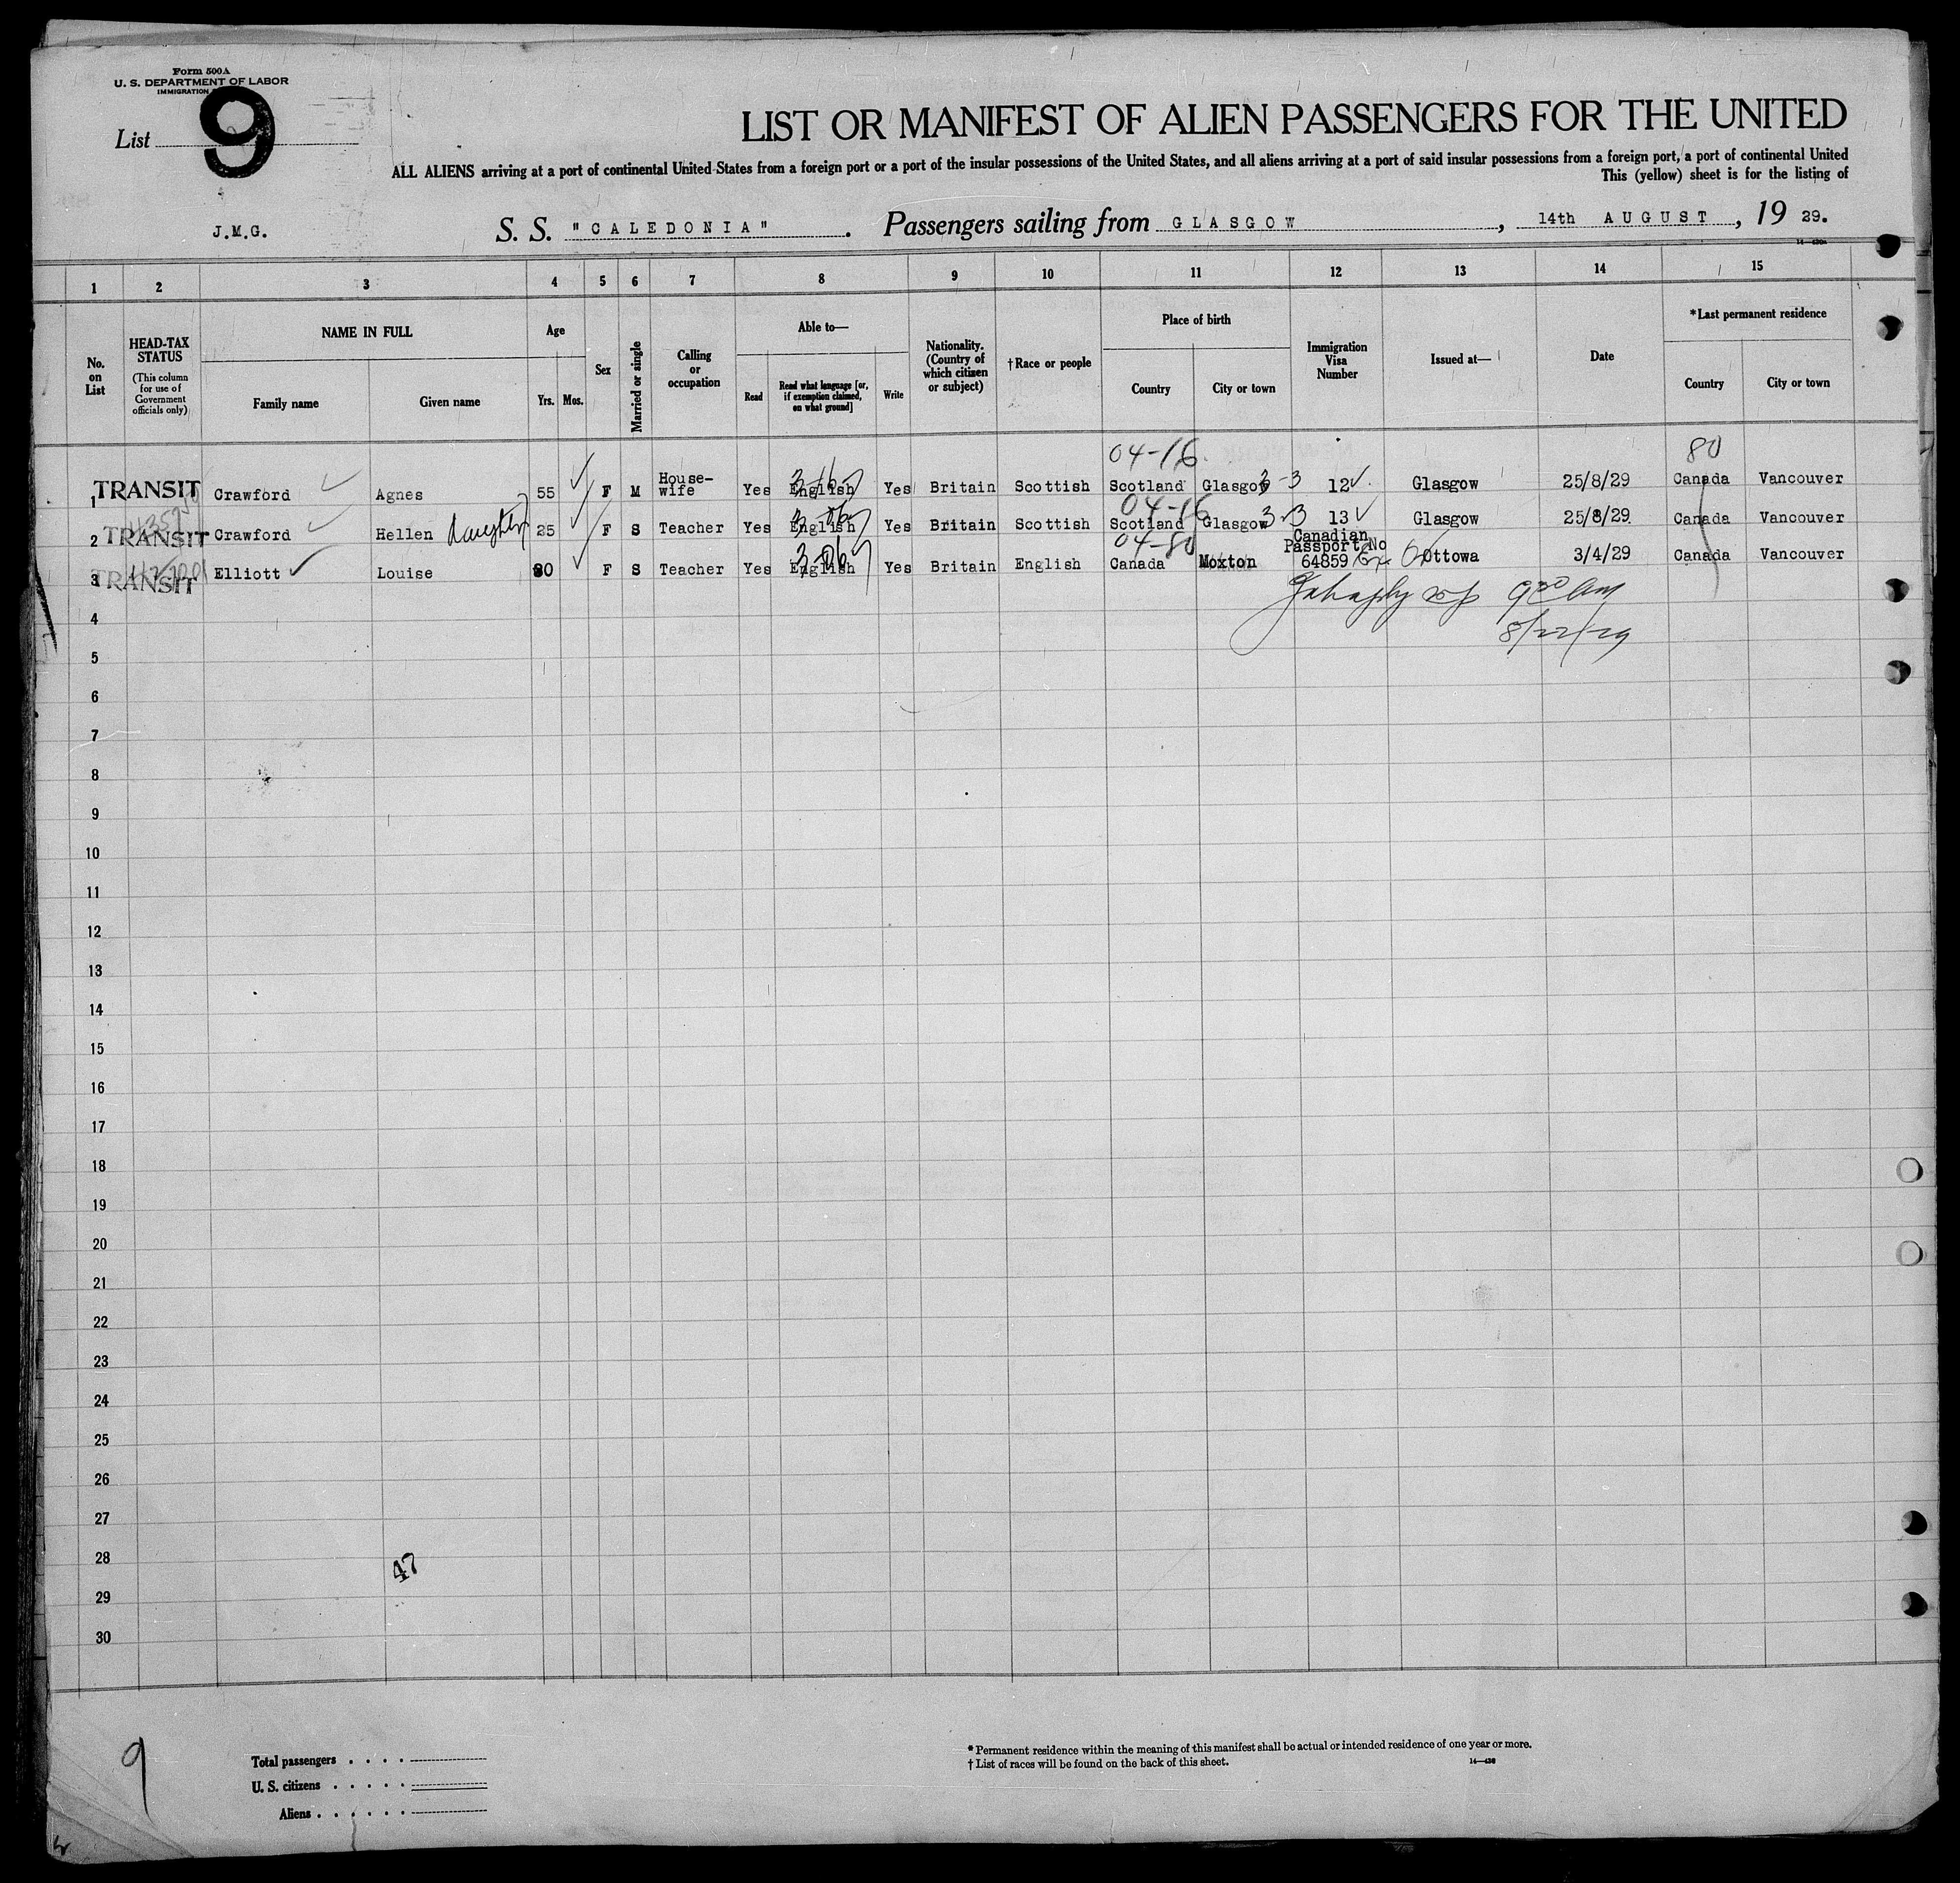 Form 500A
U. S. DEPARTMENT OF LABOR
IMMIGRATION
List 9
LIST OR MANIFEST OF ALIEN PASSENGERS FOR THE UNITED
ALL ALIENS arriving at a port of continental United States from a foreign port or a port of the insular possessions of the United States, and all aliens arriving at a port of said insular possessions from a foreign port, a port of continental United
This (yellow) sheet is for the listing of
J.M.G. S. S. "CALEDONIA". Passengers sailing from GLASGOW, 14th AUGUST, 19 29.
1 2 3 4 5 6 7 8 9 10 11 12 13 14 15
No. on List
HEAD-TAX STATUS (This column for use of Government officials only)
NAME IN FULL
Family name Given name
Age
Yrs. Mos.
Sex
Married or single
Calling or occupation
Able to—
Read Read what language [or, if exemption claimed, on what ground] Write
Nationality. (Country of which citizen or subject)
†Race or people
Place of birth
Country City or town
Immigration Visa Number
Issued at—
Date
*Last permanent residence
Country City or town
04-16 80
1 TRANSIT Crawford Agnes 55 F M House-wife Yes English Yes Britain Scottish Scotland Glasgow 3-3 12 Glasgow 25/8/29 Canada Vancouver
04-16
2 TRANSIT Crawford Hellen daughter 25 F S Teacher Yes English Yes Britain Scottish Scotland Glasgow 3-3 13 Glasgow 25/8/29 Canada Vancouver
04-80
3 TRANSIT Elliott Louise 30 F S Teacher Yes English Yes Britain English Canada Moxton Canadian Passport No 64859 Ottowa 3/4/29 Canada Vancouver
8/22/29
4
5
6
7
8
9
10
11
12
13
14
15
16
17
18
19
20
21
22
23
24
25
26
27
28
47
29
30
9
Total passengers . . . .
U. S. citizens . . . . .
Aliens . . . . . .
* Permanent residence within the meaning of this manifest shall be actual or intended residence of one year or more.
† List of races will be found on the back of this sheet.
14—430